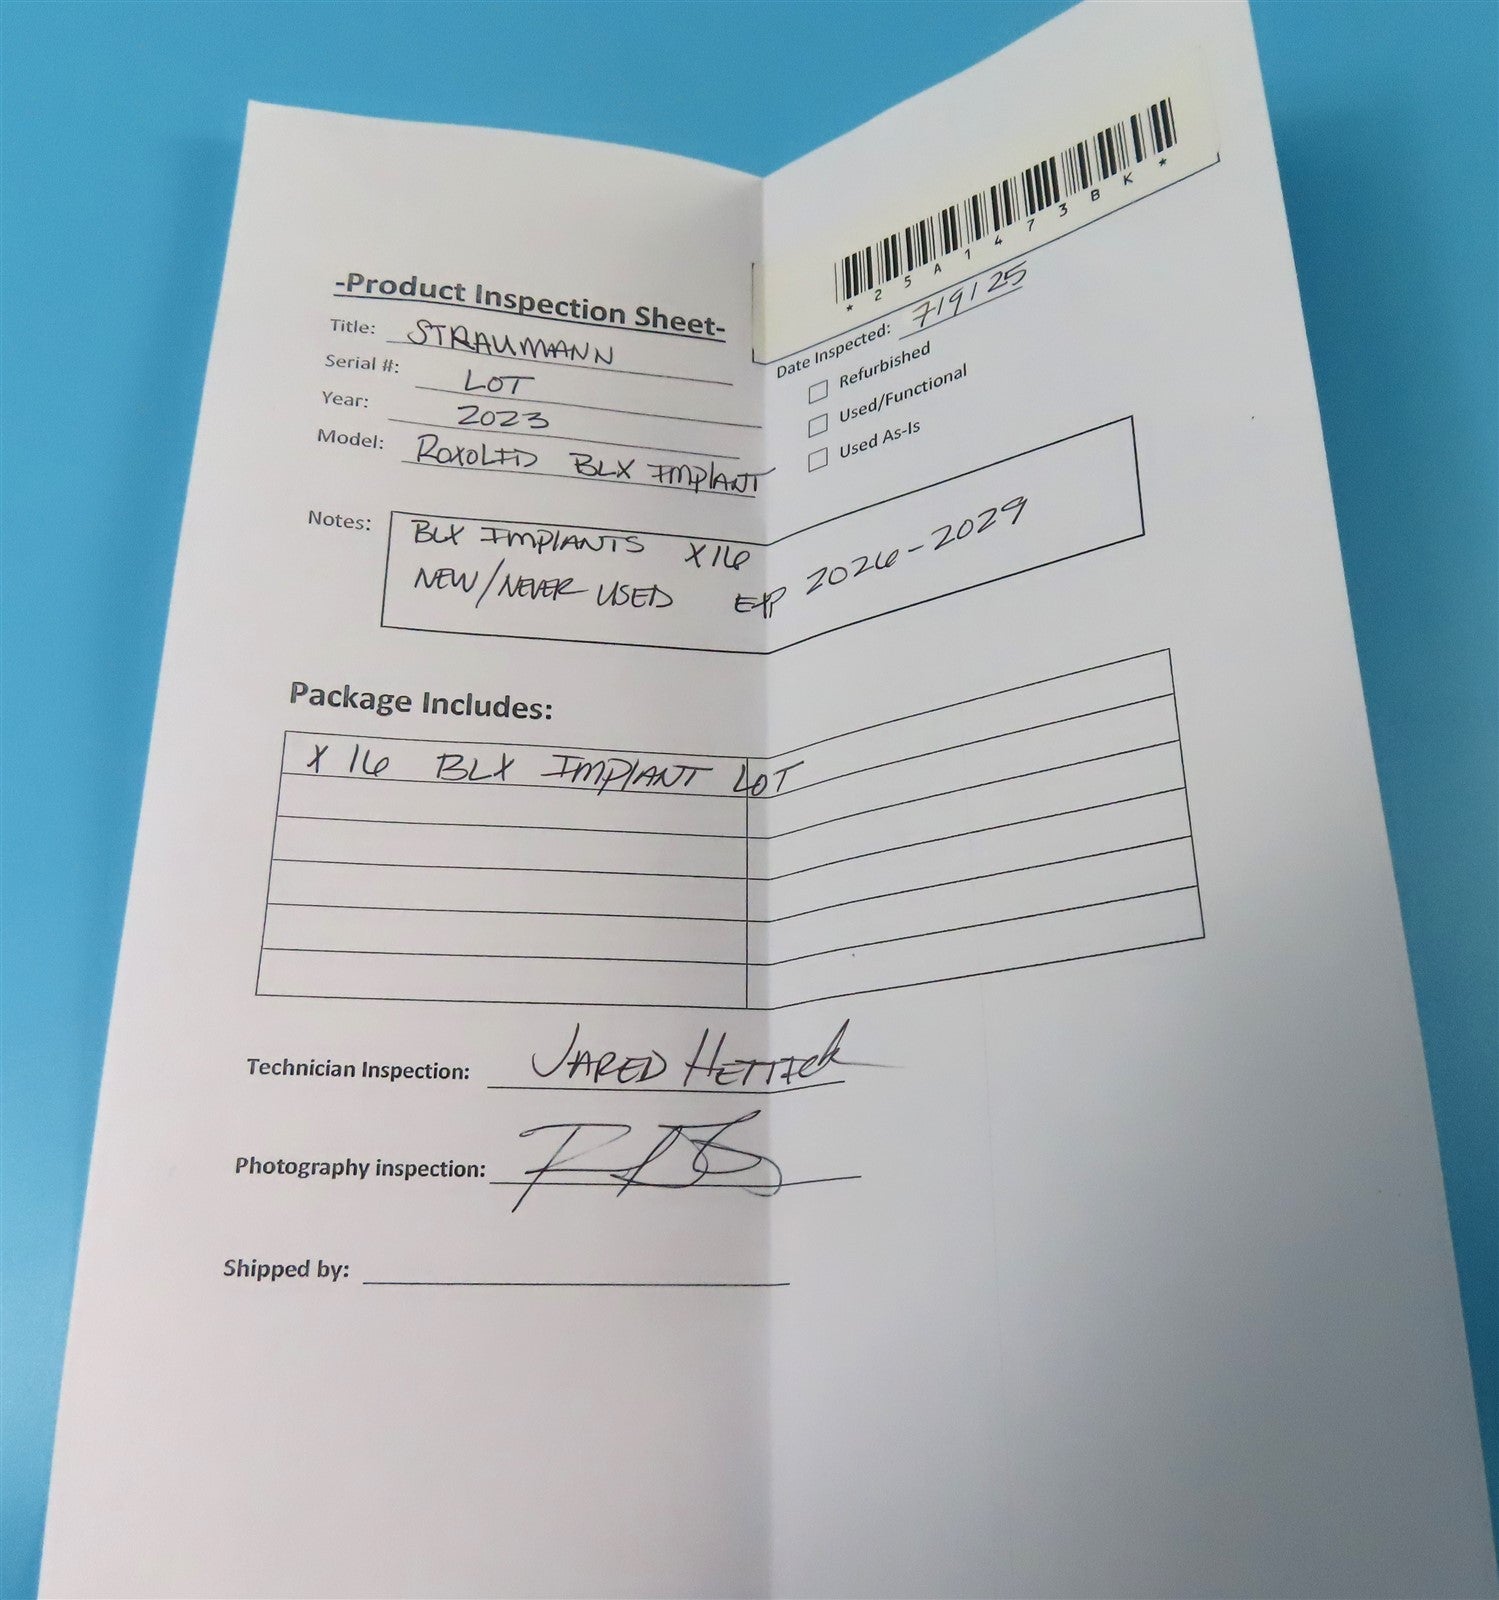 *25A1473BK*
-Product Inspection Sheet-
Title: STRAUMANN
Serial #: LOT
Year: 2023
Model: ROXOLID BLX IMPLANT
Date Inspected: 7/9/25
Refurbished
Used/Functional
Used As-Is
Notes: BLX IMPLANTS X16
NEW/NEVER USED EXP 2026-2029
Package Includes:
X 16 BLX IMPLANT LOT
Technician Inspection: JARED HETTICK
Photography inspection:
Shipped by: